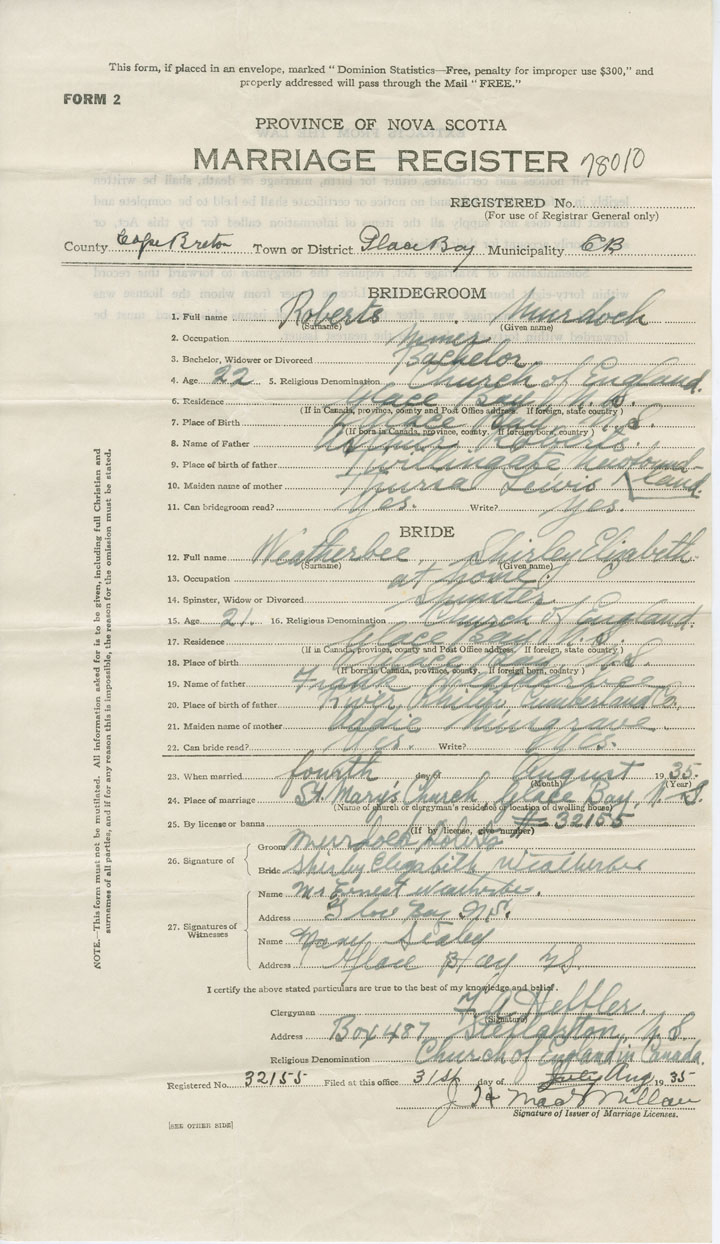 This form, if placed in an envelope, marked " Dominion Statistics—Free, penalty for improper use $300," and
properly addressed will pass through the Mail " FREE."
FORM 2
PROVINCE OF NOVA SCOTIA
MARRIAGE REGISTER 78010
REGISTERED No.
(For use of Registrar General only)
County Cape Breton Town or District Glace Bay Municipality CB
BRIDEGROOM
1. Full name Roberts Murdoch
(Surname) (Given name)
2. Occupation miner
3. Bachelor, Widower or Divorced Bachelor
4. Age 22 5. Religious Denomination Church of England.
6. Residence Glace Bay N.S.
(If in Canada, province, county and Post Office address. If foreign, state country )
7. Place of Birth Glace Bay N.S.
(If born in Canada, province, county. If foreign born, country )
8. Name of Father Arthur Roberts.
9. Place of birth of father Twillingate Newfound-
10. Maiden name of mother Lewis land.
11. Can bridegroom read? Yes. Write? yes.
BRIDE
12. Full name Weatherbee Shirley Elizabeth
(Surname) (Given name)
13. Occupation at home
14. Spinster, Widow or Divorced Spinster
15. Age 21. 16. Religious Denomination Church of England.
17. Residence Glace Bay N.S.
(If in Canada, province, county and Post Office address. If foreign, state country )
18. Place of birth Glace Bay N.S.
(If born in Canada, province, county, If foreign born, country )
19. Name of father Frank Weatherbee
20. Place of birth of father River Cumberland Co.
21. Maiden name of mother Addie Musgrave
22. Can bride read? Yes. Write? yes.
23. When married fourth day of August 1935.
(Month) (Year)
24. Place of marriage St. Mary's Church, Glace Bay, N.S.
(Name of church or clergyman's residence or location of dwelling house)
25. By license or banns # 32155
(If by license, give number)
26. Signature of
Groom Murdock Roberts
Bride Shirley Elizabeth Weatherbee
27. Signatures of
Witnesses
Name Mr Ernest Weatherbe.
Address Glace Bay N.S.
Name Mary Sealey
Address Glace Bay NS.
I certify the above stated particulars are true to the best of my knowledge and belief.
Clergyman
(Signature)
Address Box 487 Stellarton, N.S
Religious Denomination Church of England in Canada.
Registered No. 32155 Filed at this office 31st day of July Aug 1935
J MacMillan
Signature of Issuer of Marriage Licenses.
[SEE OTHER SIDE]
NOTE.—This form must not be mutilated. All information asked for is to be given, including full Christian and
surnames of all parties, and if for any reason this is impossible, the reason for the omission must be stated.